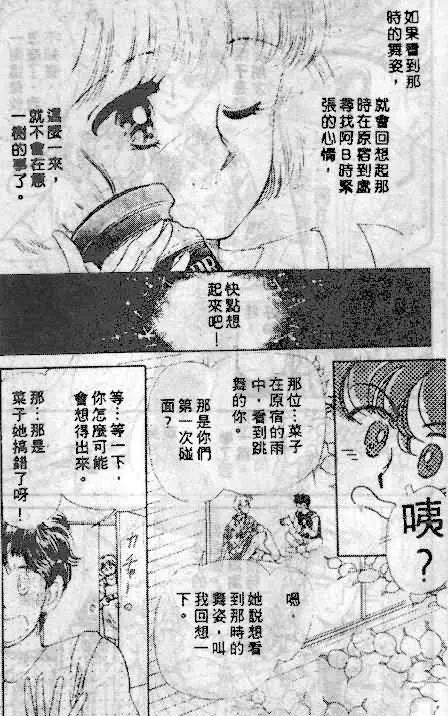 如果看到那
時的舞姿，
就會回想起那
時在原宿到處
尋找阿B時緊
張的心情，
這麼一來，
就不會在意
一樹的事了。
快點想
起來吧！
咦？
那位…菜子
在原宿的雨
中，看到跳
舞的你。
那是你們
第一次碰
面？
嗯
她說想看
到那時的
舞姿，叫
我回想一
下。
等…等一下，
你怎麼可能
會想得出來。
那…那是
菜子她搞錯了呀！